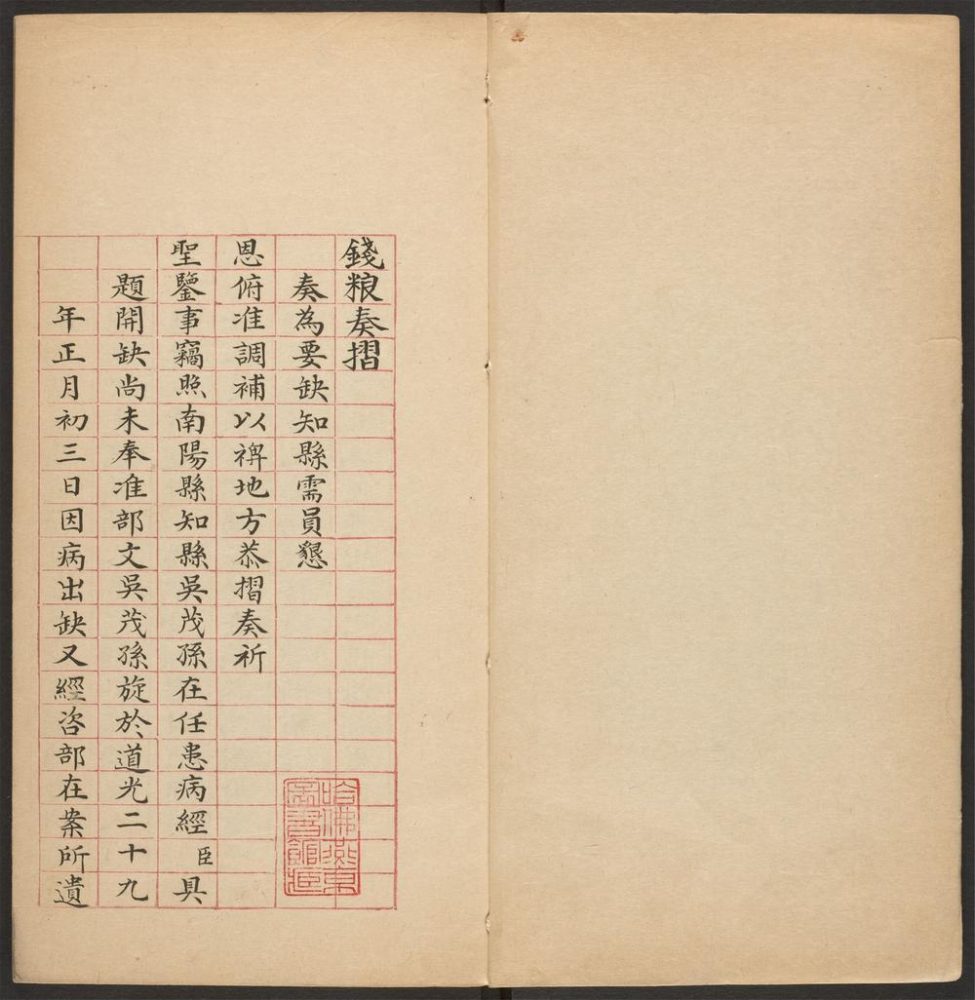 錢粮奏摺
奏為要缺知縣需員懇
恩俯准調補以裨地方恭摺奏祈
聖鑒事竊照南陽縣知縣吳茂孫在任患病經臣具
題開缺尚未奉准部文吳茂孫旋於道光二十九
年正月初三日因病出缺又經咨部在案所遺
哈佛燕京
圖書館藏